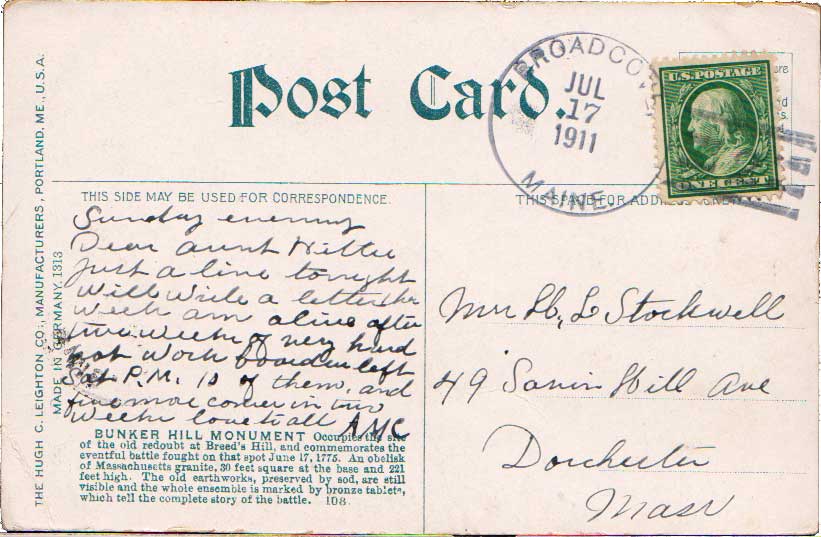 Post Card.
BROADCOVE
JUL
17
1911
MAINE
U.S. POSTAGE
ONE CENT
THE HUGH C. LEIGHTON CO., MANUFACTURERS, PORTLAND, ME., U.S.A.
MADE IN GERMANY. 1313
THIS SIDE MAY BE USED FOR CORRESPONDENCE.
Sunday evening
Dear Aunt Hittie
Just a line tonight
will write a letter this
week am alive after
two weeks of very hard
hot work boarders left
Sat P.M. 10 of them, and
five more comes in two
weeks love to all A.M.C.
BUNKER HILL MONUMENT Occupies the site
of the old redoubt at Breed's Hill, and commemorates the
eventful battle fought on that spot June 17, 1775. An obelisk
of Massachusetts granite, 30 feet square at the base and 221
feet high. The old earthworks, preserved by sod, are still
visible and the whole ensemble is marked by bronze tablets,
which tell the complete story of the battle. 108.
THIS SPACE FOR ADDRESS ONLY
Mrs H. L Stockwell
49 Savin Hill Ave
Dorchester
Mass